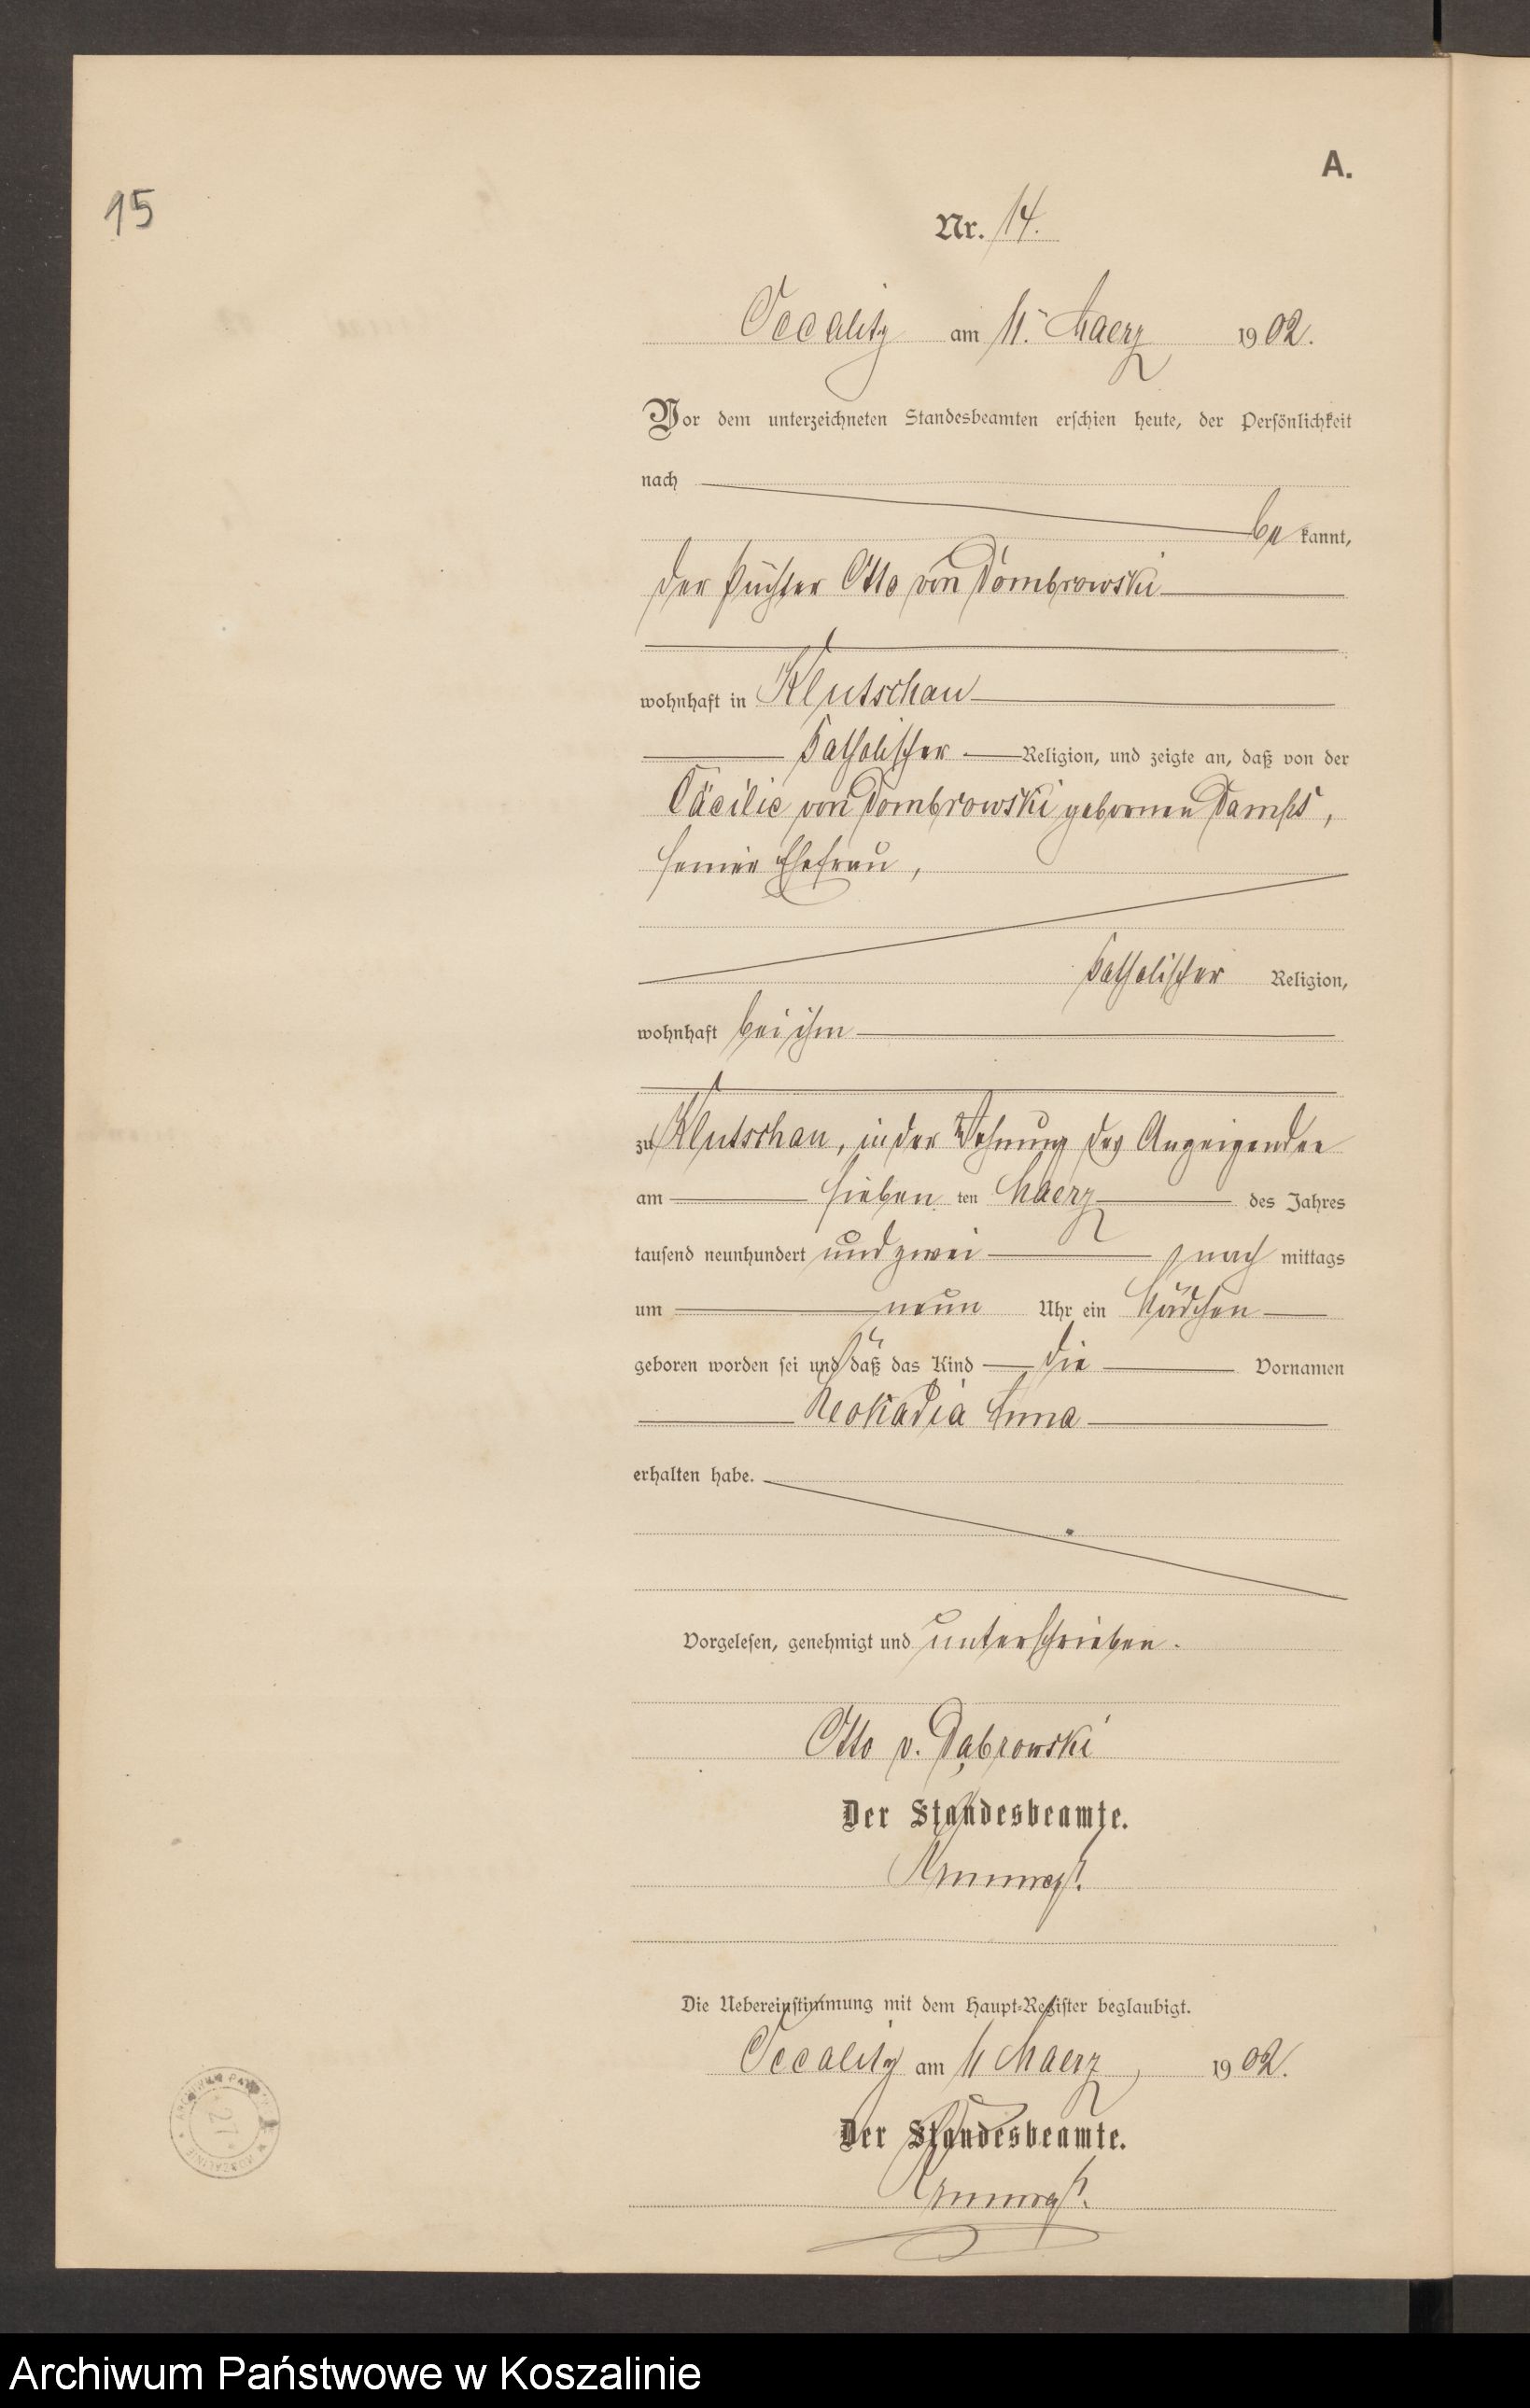 A.
15
Nr. 14.
Occalitz am 11. Maerz 1902.
Vor dem unterzeichneten Standesbeamten erschien heute, der Persönlichkeit
nach
bekannt,
der Otto von Dombrowski
wohnhaft in Klutschau
katholischer Religion, und zeigte an, daß von der
Cäcilie von Dombrowski gebornen Damps,
seiner Ehefrau,
katholischer Religion,
wohnhaft bei ihm
zu Klutschau, in der Wohnung des Anzeigenden
am sieben ten Maerz des Jahres
tausend neunhundert und zwei nach mittags
um neun Uhr ein Mädchen
geboren worden sei und daß das Kind die Vornamen
Leokadia Anna
erhalten habe.
Vorgelesen, genehmigt und unterschrieben.
Otto v. Dąbrowski
Der Standesbeamte.
Die Uebereinstimmung mit dem Haupt-Register beglaubigt.
Occalitz am 11 Maerz 1902.
Der Standesbeamte.
ARCHIWUM PAŃSTW. W KOSZALINIE
27
Archiwum Państwowe w Koszalinie